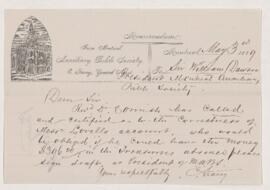 Memorandum
From Montreal
Auxiliary Bible Society
Montreal, May 3rd 1889
To Sir William Dawson
President Montreal Auxiliary
Bible Society
Dear Sir
Rev. D. Cornish has called
and certified as to the correctness of
Messr Lovells account, who would
be obliged if he could have the money
in the Treasurers absence please
sign draft, as President of MABS.
Yours respectfully